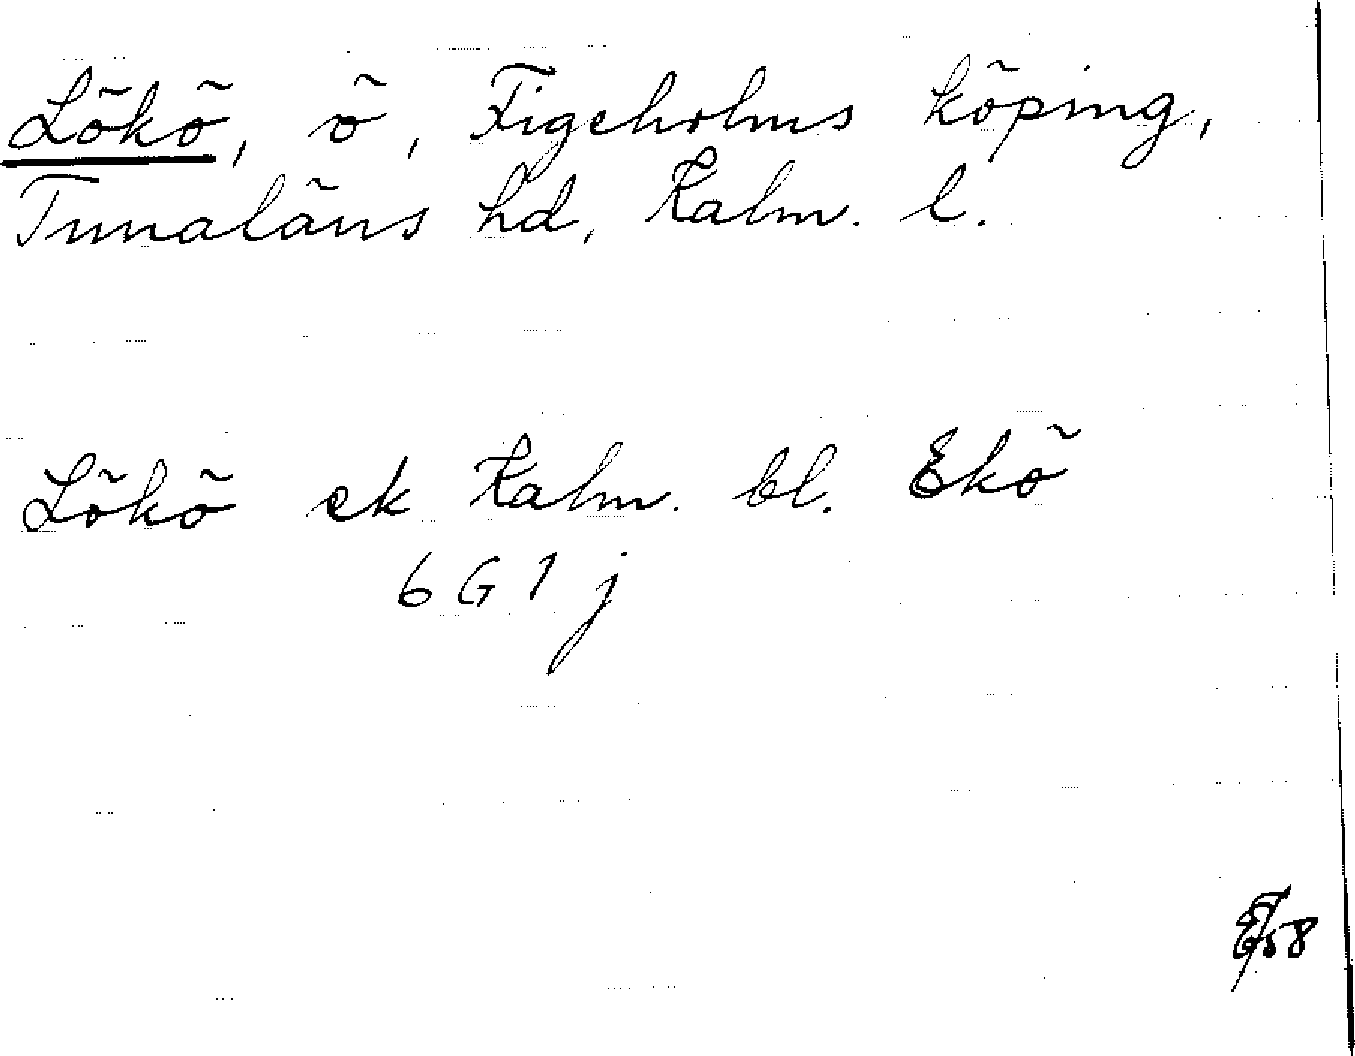 Lökö, ö, Figeholms köping,
Tunaläns hd, Kalm. l.
Lökö ek Kalm. bl. Ekö
6 G 1 j
58